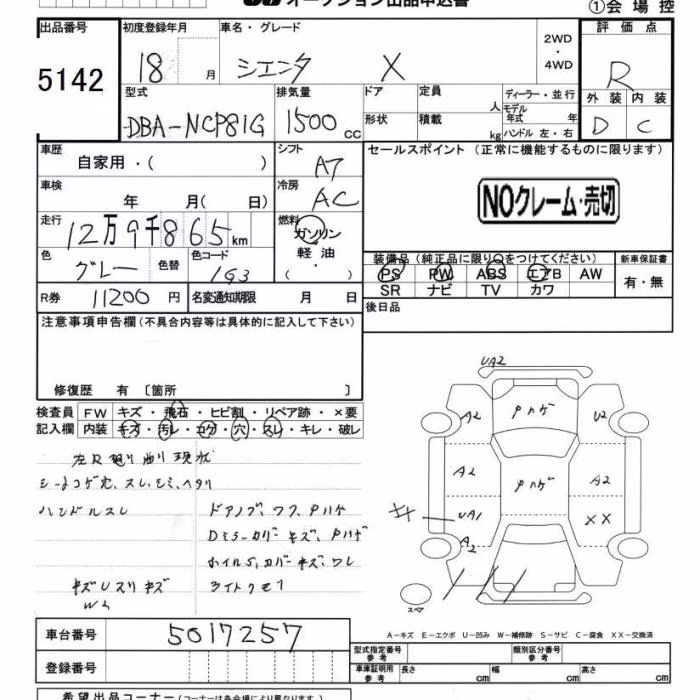 オークション出品申込書
①会場控
出品番号 初度登録年月 車名・グレード 2WD・4WD 評価点
5142 18 月 シエンタ X R
型式 排気量 ドア 定員 人 ディーラー・並行 外装 内装
DBA-NCP81G 1500cc 形状 積載 kg モデル年式 年 ハンドル 左・右 D C
車歴 自家用・( ) シフト AT セールスポイント(正常に機能するものに限ります)
車検 年 月( 日) 冷房 AC NOクレーム・売切
走行 12万9千865km 燃料 ガソリン 軽油 ・( )
色 グレー 色替 色コード 1G3
装備品(純正品に限り○をつけてください) 新車保証書
PS PW ABS エアB AW 有・無
SR ナビ TV カワ
R券 11200円 名変通知期限 月 日 後日品
注意事項申告欄(不具合内容等は具体的に記入して下さい)
修復歴 有 〔箇所 〕
検査員記入欄 FW キズ・飛石・ヒビ割・リペア跡・×要
内装 キズ・汚レ・コゲ・穴・スレ・キレ・破レ
シートコゲ穴、スレ、シミ、ヘタリ
ハンドルスレ
ドアノブ、ワク、Pハゲ
Dミラーカバーキズ、Pハゲ
ホイルS,カバーキズ、ワレ
ライトクモリ
UA2
A2 Pハゲ U2
A2 Pハゲ A2
UA1 XX
A2
スペア
A-キズ E-エクボ U-凹み W-補修跡 S-サビ C-腐食 XX-交換済
車台番号 5017257
登録番号
型式指定番号 参考 類別区分番号 参考
車庫証明用 参考 長さ cm 幅 cm 高さ cm
希望出品コーナー(コーナーは各会場により異なります)